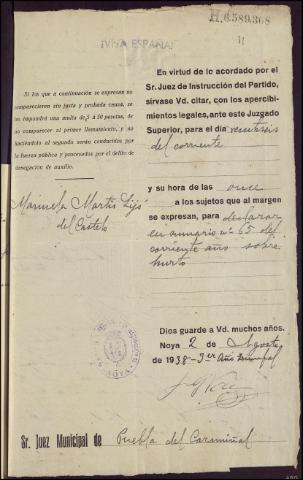 H.6589308
¡VIVA ESPAÑA!
11
Si los que a continuación se expresan no
comparecieren sin justa y probada causa, se
les impondrá una multa de 5 a 50 pesetas,
de no comparecer al primer llamamiento, y no
haciéndolo al segundo serán conducidos por
la fuerza pública y procesados por el delito de
denegación de auxilio.
Manuela Martis Lijó
del Castelo
En virtud de lo acordado por el
Sr. Juez de Instrucción del Partido,
sírvase Vd. citar, con los apercibi-
mientos legales, ante este Juzgado
Superior, para el día veintiseis
del corriente
y su hora de las once
a los sujetos que al margen
se expresan, para declarar
en sumario nº 65 del
corriente año sobre
hurto
Dios guarde a Vd. muchos años.
Noya 2 de Agosto
de 1938 - 3er Año Triunfal
Sr. Juez Municipal de Puebla del Caramiñal